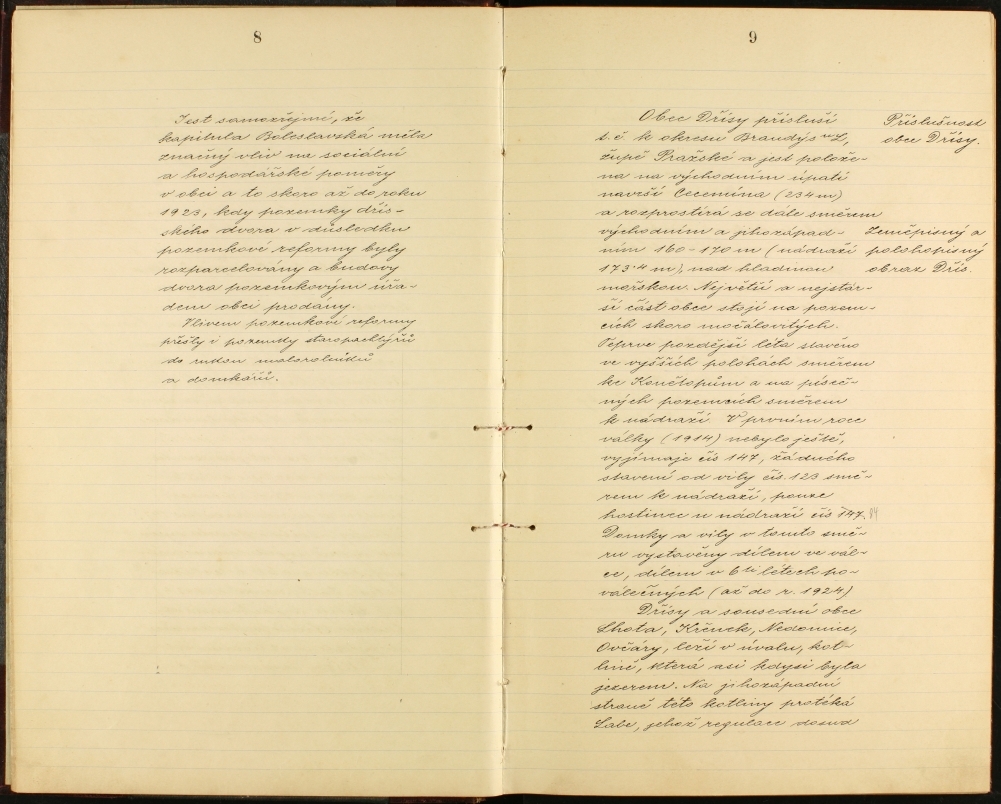 8
Jest samozřejmé, že
kapitula Boleslavská měla
značný vliv na sociální
a hospodářské poměry
v obci a to skoro až do roku
1923, kdy pozemky dřís-
ského dvora v důsledku
pozemkové reformy byly
rozparcelovány a budovy
dvora pozemkovým úřa-
dem obci prodány.
Vlivem pozemkové reformy
přešly i pozemky staropachtýřů
do rukou malorolníků
a domkářů.
9
Obec Dřísy přísluší
t.č. k okresu Brandýs n/L,
župě Pražské a jest polože-
na na východním úpatí
navrší Cecemína (234 m)
a rozprostírá se dále směrem
východním a jihozápad-
ním 160-170 m (nádraží
173·4 m), nad hladinou
mořskou. Největší a nejstar-
ší část obce stojí na pozem-
cích skoro močálovitých.
Teprve pozdější léta stavěno
ve vyšších polohách směrem
ke Konětopům a na píseč-
ných pozemcích směrem
k nádraží. V prvním roce
války (1914) nebylo ještě,
vyjímaje čís 147, žádného
stavení od vily čís. 123 smě-
rem k nádraží, pouze
hostinec u nádraží čís 147. 84
Domky a vily v tomto smě-
ru vystavěny dílem ve vál-
ce, dílem v 6ti létech po-
válečných (až do r. 1924)
Dřísy a sousední obce
Lhota, Křenek, Nedomice,
Ovčáry, leží v úvalu, kot-
lině, která asi kdysi byla
jezerem. Na jihozápadní
straně této kotliny protéká
Labe, jehož regulace dosud
Příslušnost
obce Dřísy.
Zeměpisný a
polohopisný
obraz Dřís.